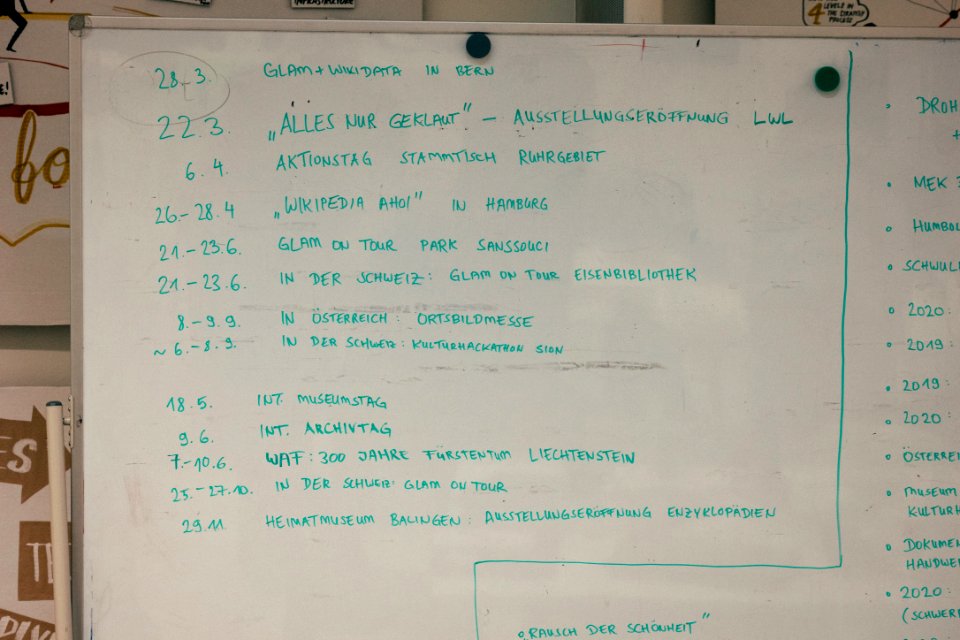 4 LEVELS IN THE STRATEGY PROCESS
28.3. GLAM + WIKIDATA IN BERN
22.3. „ALLES NUR GEKLAUT" – AUSSTELLUNGSERÖFFNUNG LWL
6.4. AKTIONSTAG STAMMTISCH RUHRGEBIET
26.–28.4 „WIKIPEDIA AHOI" IN HAMBURG
21.–23.6. GLAM ON TOUR PARK SANSSOUCI
21.–23.6. IN DER SCHWEIZ: GLAM ON TOUR EISENBIBLIOTHEK
8.–9.9. IN ÖSTERREICH: ORTSBILDMESSE
~ 6.–8.9. IN DER SCHWEIZ: KULTURHACKATHON SION
18.5. INT. MUSEUMSTAG
9.6. INT. ARCHIVTAG
7.–10.6. WAF: 300 JAHRE FÜRSTENTUM LIECHTENSTEIN
25.–27.10. IN DER SCHWEIZ: GLAM ON TOUR
29.11. HEIMATMUSEUM BALINGEN: AUSSTELLUNGSERÖFFNUNG ENZYKLOPÄDIEN
• RAUSCH DER SCHÖNHEIT"
• DROH
+
• MEK
• HUMBOL
• SCHWUL
• 2020:
• 2019:
• 2019:
• 2020:
• ÖSTERREI
• MUSEUM
KULTURH
• DOKUMEN
HANDWE
• 2020:
(SCHWER